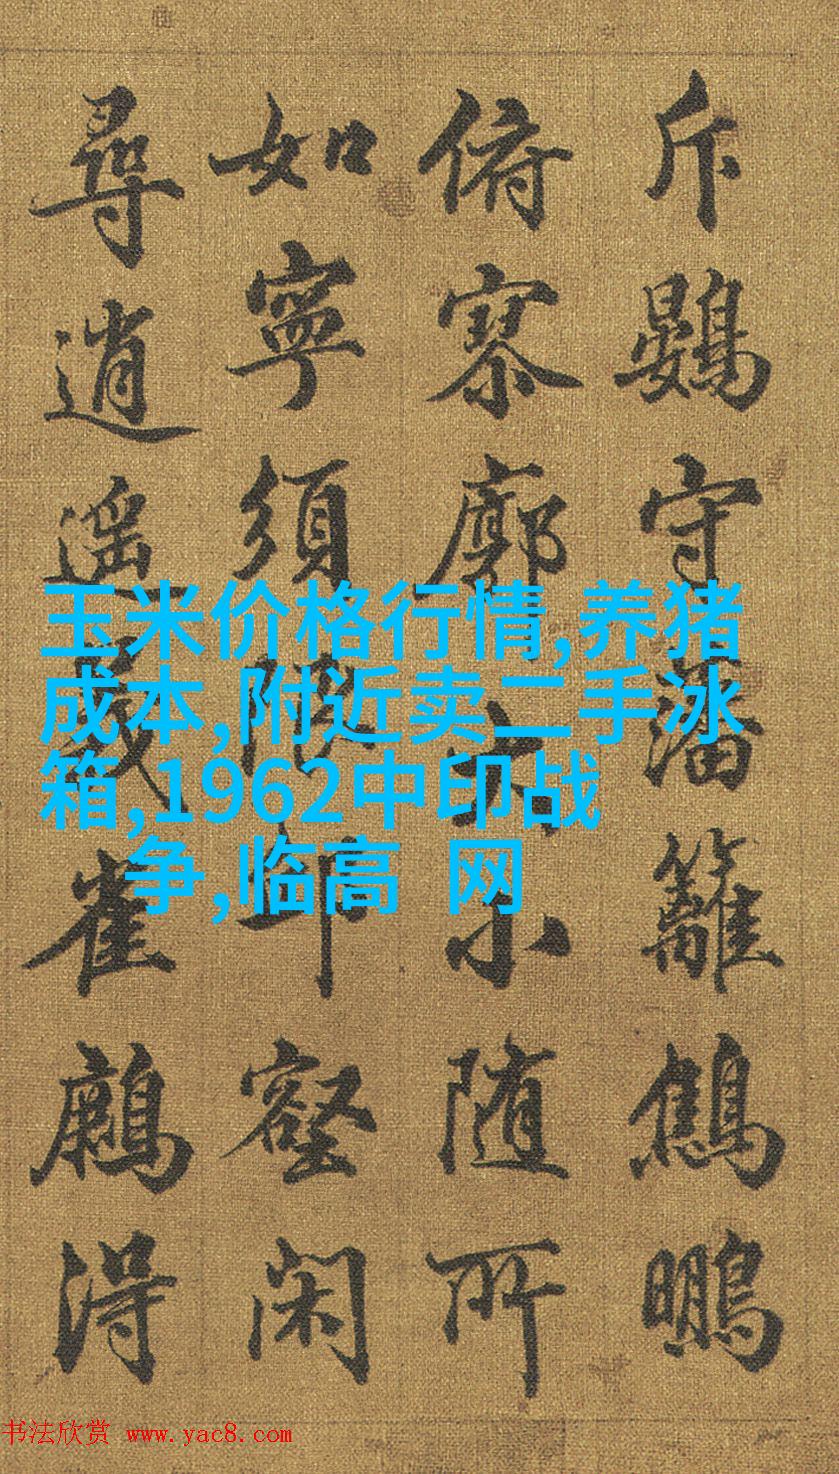 斥鷃守藩籬鷦鵬
俯寥廓大小随所
如寧須壑閑
尋逍遥雀得
玉米价格行情,养猪
成本,附近卖二手冰
箱,1962中印战
争,临高 网
书法欣赏 www.yac8.com